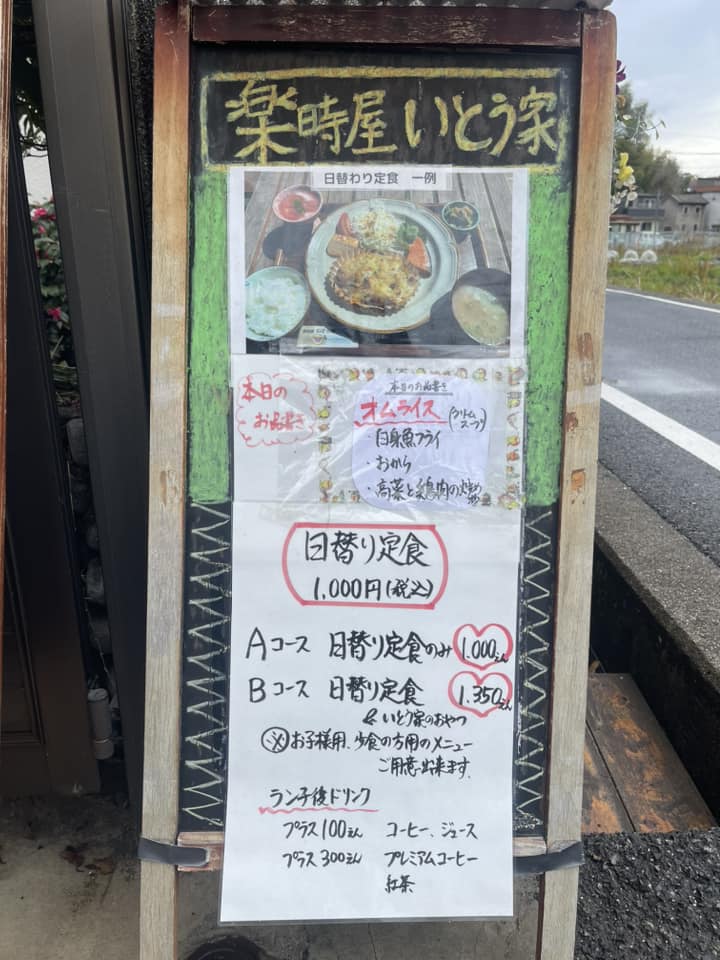 楽時屋 いとう家
日替わり定食 一例
本日の
お品書き
本日のお品書き
オムライス (クリームソース)
・白身魚フライ
・おから
・高菜と鶏肉の炒め
日替り定食
1,000円(税込)
Aコース 日替り定食のみ 1.000えん
Bコース 日替り定食 1.350えん
& いとう家のおやつ
※お子様用、少食の方用のメニュー
ご用意出来ます。
ランチ後ドリンク
プラス100えん コーヒー、ジュース
プラス300えん プレミアムコーヒー
紅茶